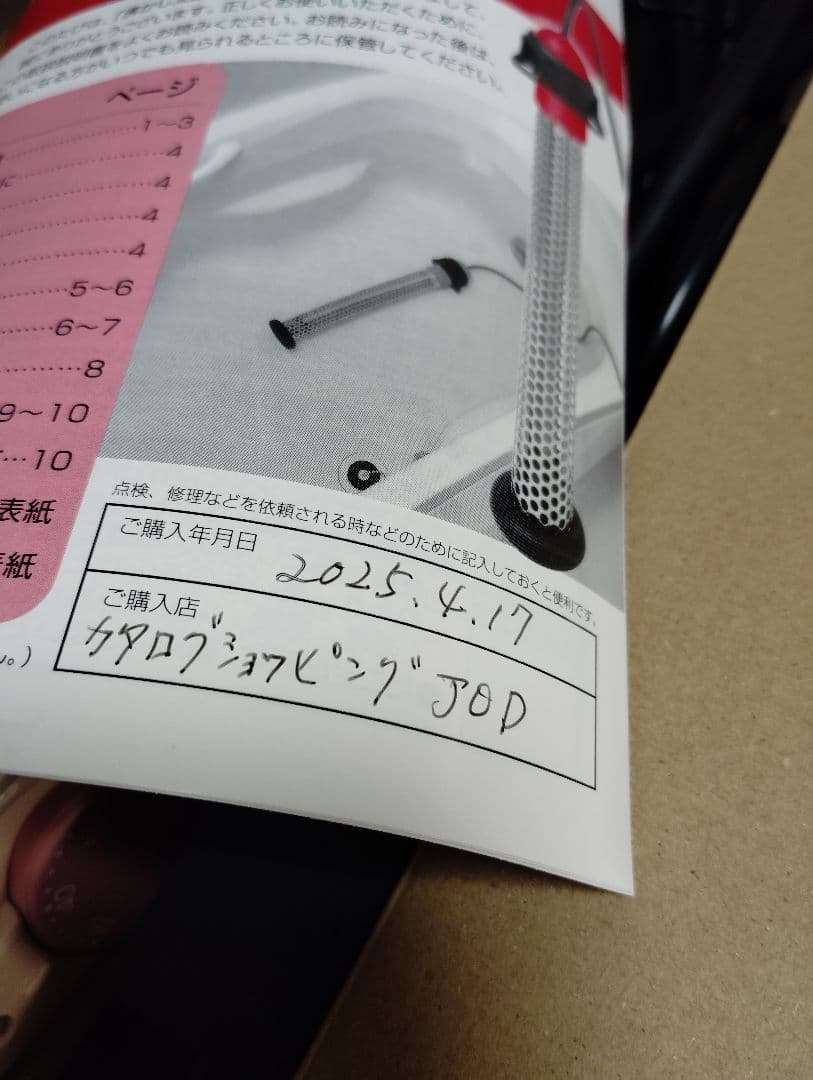 正しくお使いいただくために、
をよくお読みください。お読みになった後は、
いつでも見られるところに保管してください。
ページ
1～3
4
4
4
4
5～6
6～7
8
9～10
10
表紙
紙
点検、修理などを依頼される時などのために記入しておくと便利です。
ご購入年月日
2025.4.17
ご購入店
カタログショッピング JOD